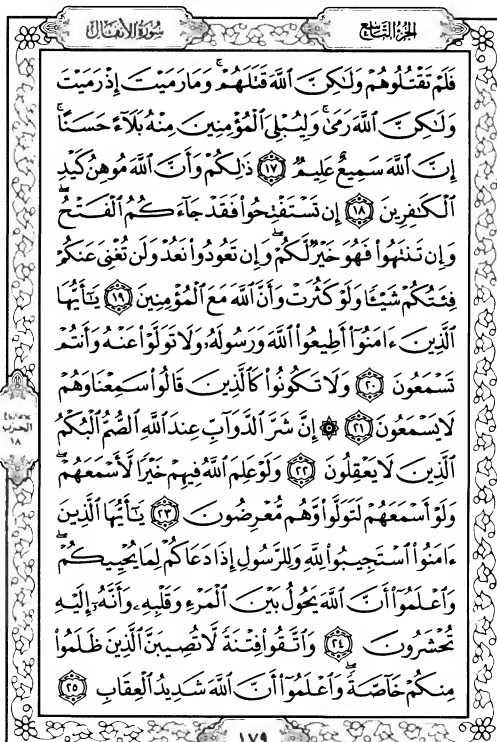 سُورَةُ الأَنفَال
الجزء التاسع
فَلَمْ تَقْتُلُوهُمْ وَلَٰكِنَّ ٱللَّهَ قَتَلَهُمْ ۚ وَمَا رَمَيْتَ إِذْ رَمَيْتَ
وَلَٰكِنَّ ٱللَّهَ رَمَىٰ ۚ وَلِيُبْلِىَ ٱلْمُؤْمِنِينَ مِنْهُ بَلَآءً حَسَنًا ۚ
إِنَّ ٱللَّهَ سَمِيعٌ عَلِيمٌ ١٧ ذَٰلِكُمْ وَأَنَّ ٱللَّهَ مُوهِنُ كَيْدِ
ٱلْكَٰفِرِينَ ١٨ إِن تَسْتَفْتِحُوا۟ فَقَدْ جَآءَكُمُ ٱلْفَتْحُ ۖ
وَإِن تَنتَهُوا۟ فَهُوَ خَيْرٌ لَّكُمْ ۖ وَإِن تَعُودُوا۟ نَعُدْ وَلَن تُغْنِىَ عَنكُمْ
فِئَتُكُمْ شَيْـًٔا وَلَوْ كَثُرَتْ وَأَنَّ ٱللَّهَ مَعَ ٱلْمُؤْمِنِينَ ١٩ يَٰٓأَيُّهَا
ٱلَّذِينَ ءَامَنُوٓا۟ أَطِيعُوا۟ ٱللَّهَ وَرَسُولَهُۥ وَلَا تَوَلَّوْا۟ عَنْهُ وَأَنتُمْ
تَسْمَعُونَ ٢٠ وَلَا تَكُونُوا۟ كَٱلَّذِينَ قَالُوا۟ سَمِعْنَا وَهُمْ
لَا يَسْمَعُونَ ٢١ ۞ إِنَّ شَرَّ ٱلدَّوَآبِّ عِندَ ٱللَّهِ ٱلصُّمُّ ٱلْبُكْمُ
ٱلَّذِينَ لَا يَعْقِلُونَ ٢٢ وَلَوْ عَلِمَ ٱللَّهُ فِيهِمْ خَيْرًا لَّأَسْمَعَهُمْ ۖ
وَلَوْ أَسْمَعَهُمْ لَتَوَلَّوا۟ وَّهُم مُّعْرِضُونَ ٢٣ يَٰٓأَيُّهَا ٱلَّذِينَ
ءَامَنُوا۟ ٱسْتَجِيبُوا۟ لِلَّهِ وَلِلرَّسُولِ إِذَا دَعَاكُمْ لِمَا يُحْيِيكُمْ ۖ
وَٱعْلَمُوٓا۟ أَنَّ ٱللَّهَ يَحُولُ بَيْنَ ٱلْمَرْءِ وَقَلْبِهِۦ وَأَنَّهُۥٓ إِلَيْهِ
تُحْشَرُونَ ٢٤ وَٱتَّقُوا۟ فِتْنَةً لَّا تُصِيبَنَّ ٱلَّذِينَ ظَلَمُوا۟
مِنكُمْ خَآصَّةً ۖ وَٱعْلَمُوٓا۟ أَنَّ ٱللَّهَ شَدِيدُ ٱلْعِقَابِ ٢٥
الحزب
١٨
١٧٩